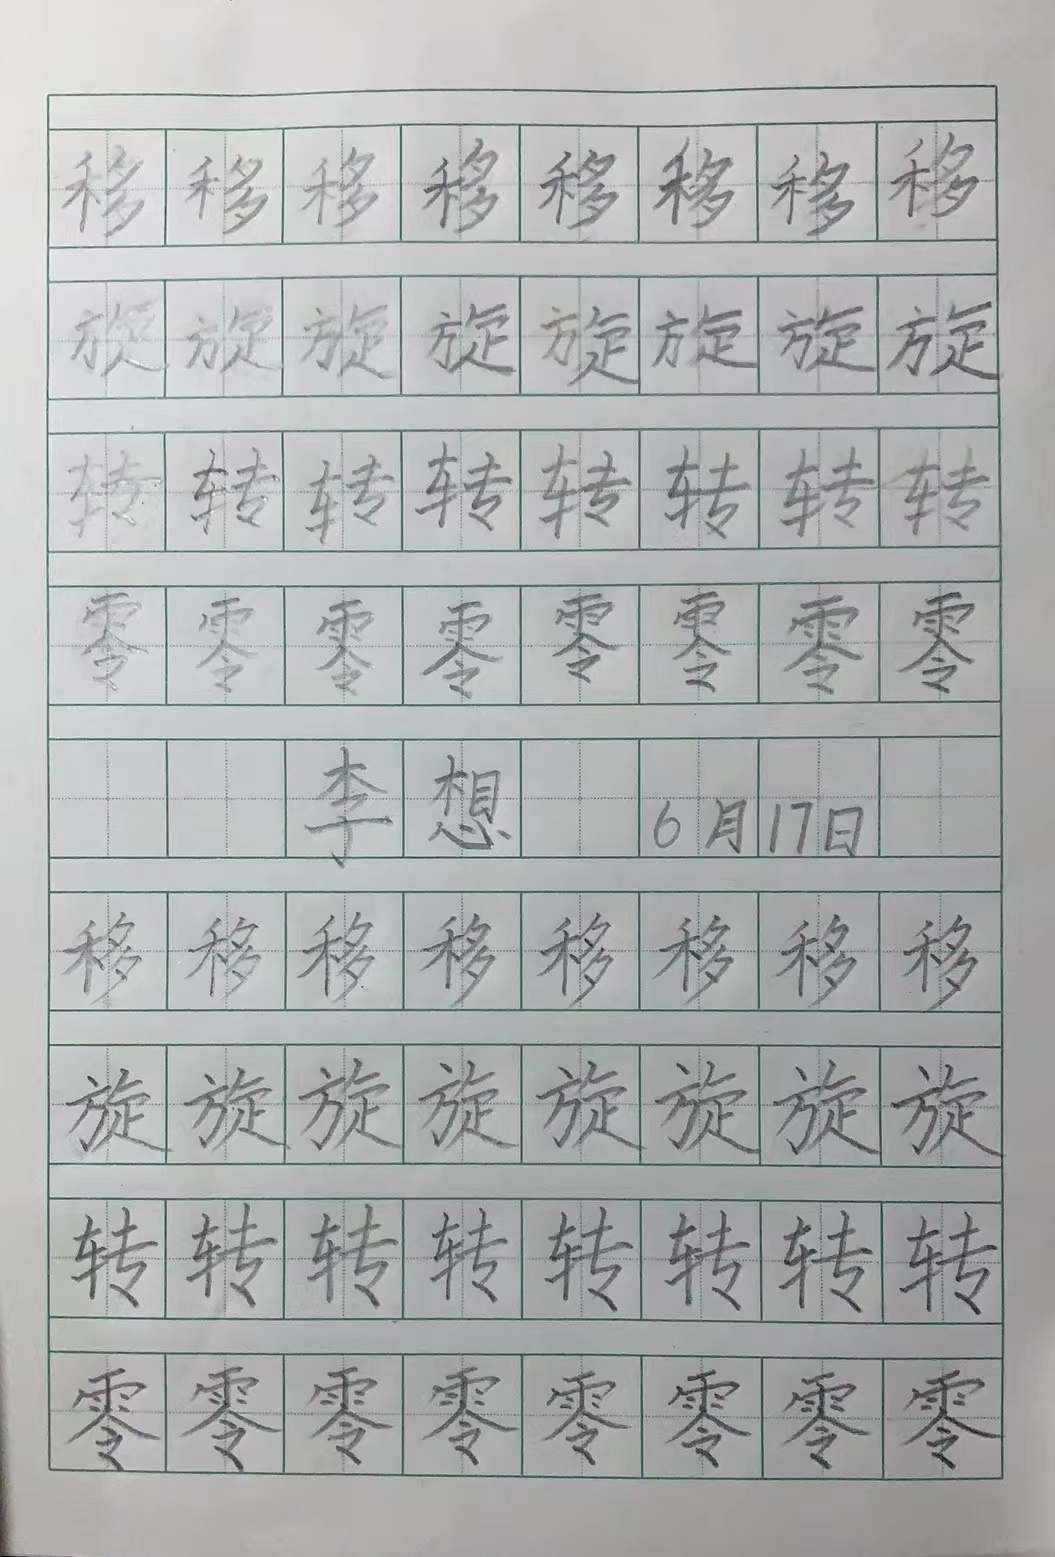 移移移移移移移移
旋旋旋旋旋旋旋旋
转转转转转转转转
零零零零零零零零
李想 6月17日
移移移移移移移移
旋旋旋旋旋旋旋旋
转转转转转转转转
零零零零零零零零